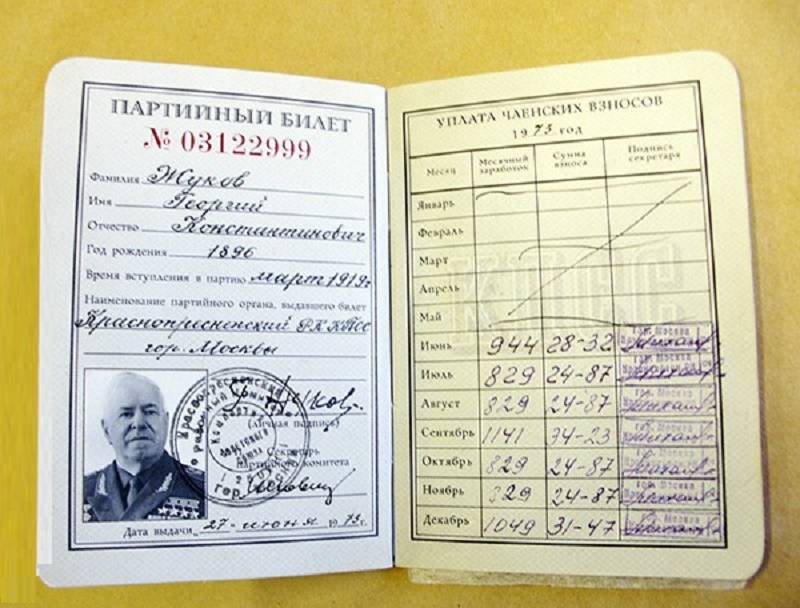 ПАРТИЙНЫЙ БИЛЕТ
№ 03122999
Фамилия Жуков
Имя Георгий
Отчество Константинович
Год рождения 1896
Время вступления в партию март 1919г
Наименование партийного органа, выдавшего билет
Краснопресненский РК КПСС
гор. Москвы
(Личная подпись)
Секретарь
партийного комитета
Дата выдачи 27 июня 1973 г.
УПЛАТА ЧЛЕНСКИХ ВЗНОСОВ
1973 год
Месяц Месячный заработок Сумма взноса Подпись секретаря
Январь
Февраль
Март
Апрель
Май
КПСС
Июнь 944 28-32 гор. Москва
Июль 829 24-87 гор. Москва
Август 829 24-87 гор. Москва
Сентябрь 1141 34-23
Октябрь 829 24-87
Ноябрь 829 24-87
Декабрь 1049 31-47